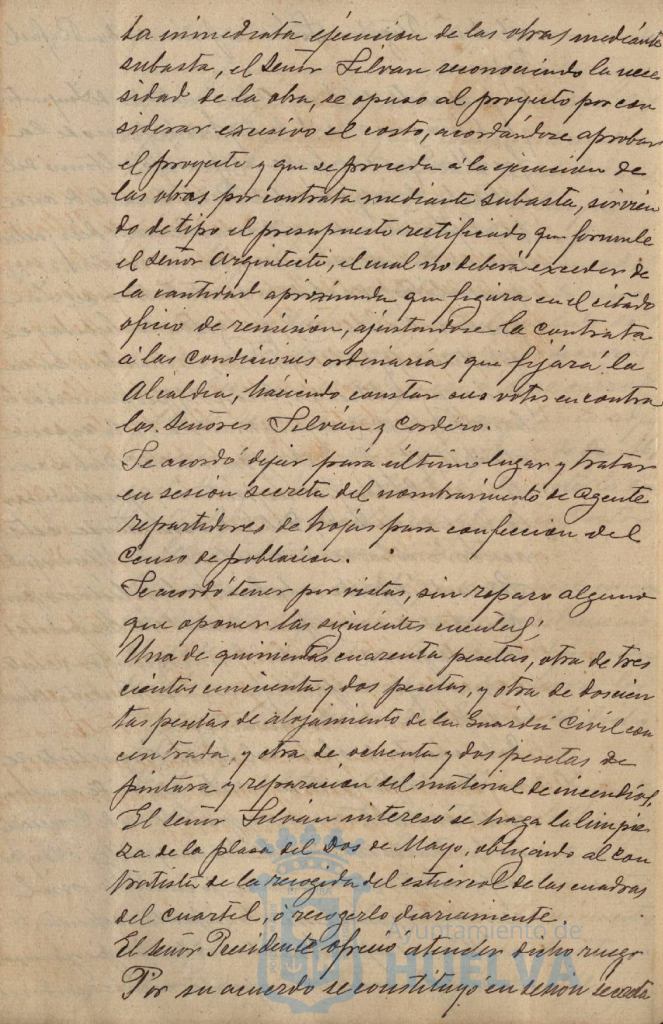 la inmediata ejecucion de las obras mediante
subasta, el Señor Silvan reconociendo la nece
sidad de la obra, se opuso al proyecto por con
siderar excesivo el costo, acordándose aprobar
el proyecto y que se proceda á la ejecucion de
las obras por contrata mediante subasta, sirvien
do de tipo el presupuesto rectificado que formule
el Señor Arquitecto, el cual no deberá exceder de
la cantidad aproximada que figura en el citado
oficio de remision, ajustandose la contrata
á las condiciones ordinarias que fijára la
Alcaldia, haciendo constar sus votos en contra
los Señores Silván y Cordero.
Se acordó dejar para último lugar y tratar
en sesion secreta del nombramiento de agente
repartidores de hojas para confeccion del
Censo de poblacion.
Se acordó tener por vistas, sin reparo alguno
que oponer las siguientes cuentas;
Una de quinientas cuarenta pesetas, otra de tres
cientas cincuenta y dos pesetas, y otra de doscien
tas pesetas de alojamiento de la Guardia Civil con
centrada, y otra de ochenta y dos pesetas de
pintura y reparacion del material de incendios.
El señor Silván interesó se haga la limpie
za de la plaza del Dos de Mayo, obligando al con
tratista de la recogida del estiercol de las cuadras
del cuartel, á recogerlo diariamente.
El señor Presidente ofreció atender dicho ruego
Por su acuerdo se constituyó en sesion secreta
Ayuntamiento de
HUELVA